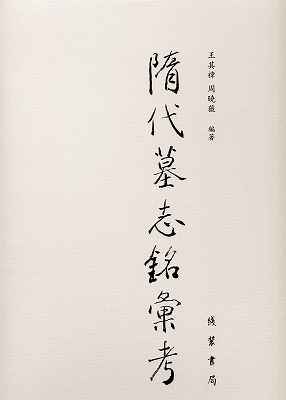 王其禕 周曉薇 編著
隋代墓志銘彙考
綫裝書局